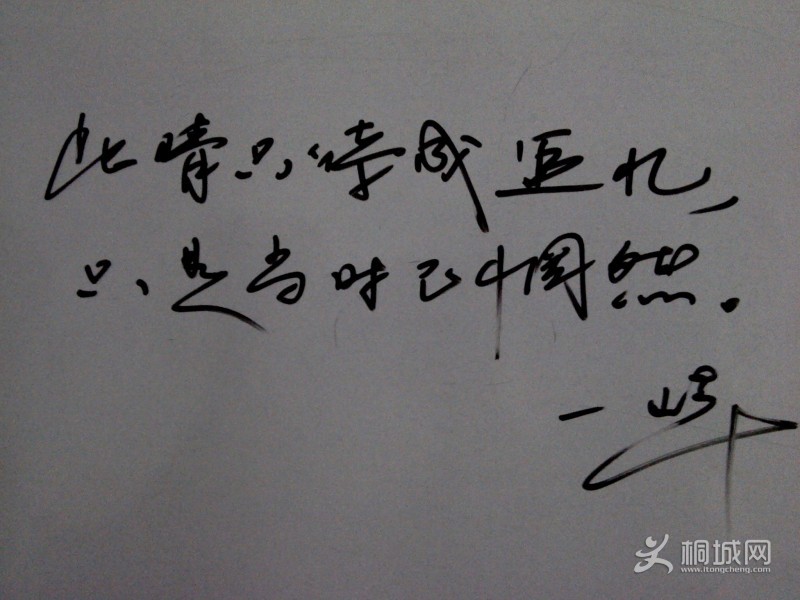 此情只待成追忆，
只是当时已惘然。
一
桐城网
www.itongcheng.com